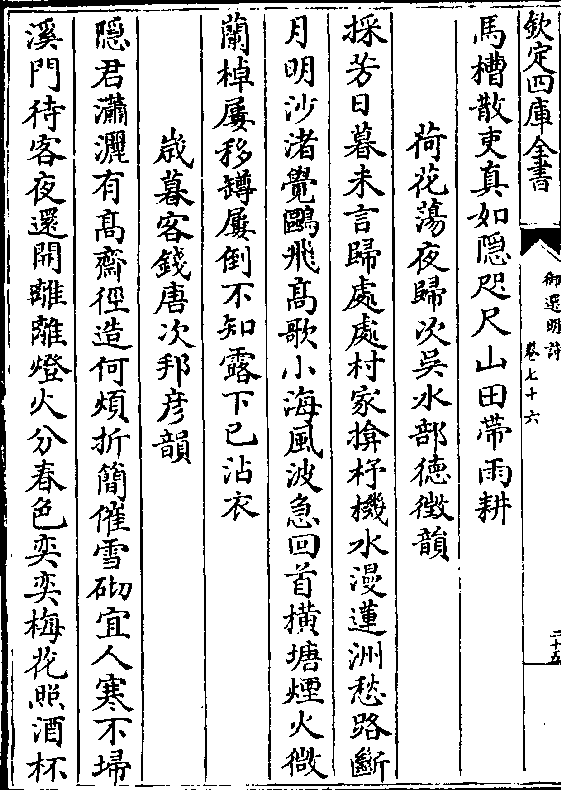 欽定四庫全書
御選明詩
卷七十六
二十五
馬槽散吏真如隱咫尺山田帶雨耕
荷花蕩夜歸次吳水部德徴韻
採芳日暮未言歸處處村家揜杼機水漫蓮洲愁路斷
月明沙渚覺鷗飛高歌小海風波急回首横塘煙火微
蘭棹屢移罇屢倒不知露下已沾衣
嵗暮客錢唐次邦彦韻
隠君瀟灑有髙齋徑造何煩折簡催雪砌宜人寒不埽
溪門待客夜還開離離燈火分春色奕奕梅花照酒杯